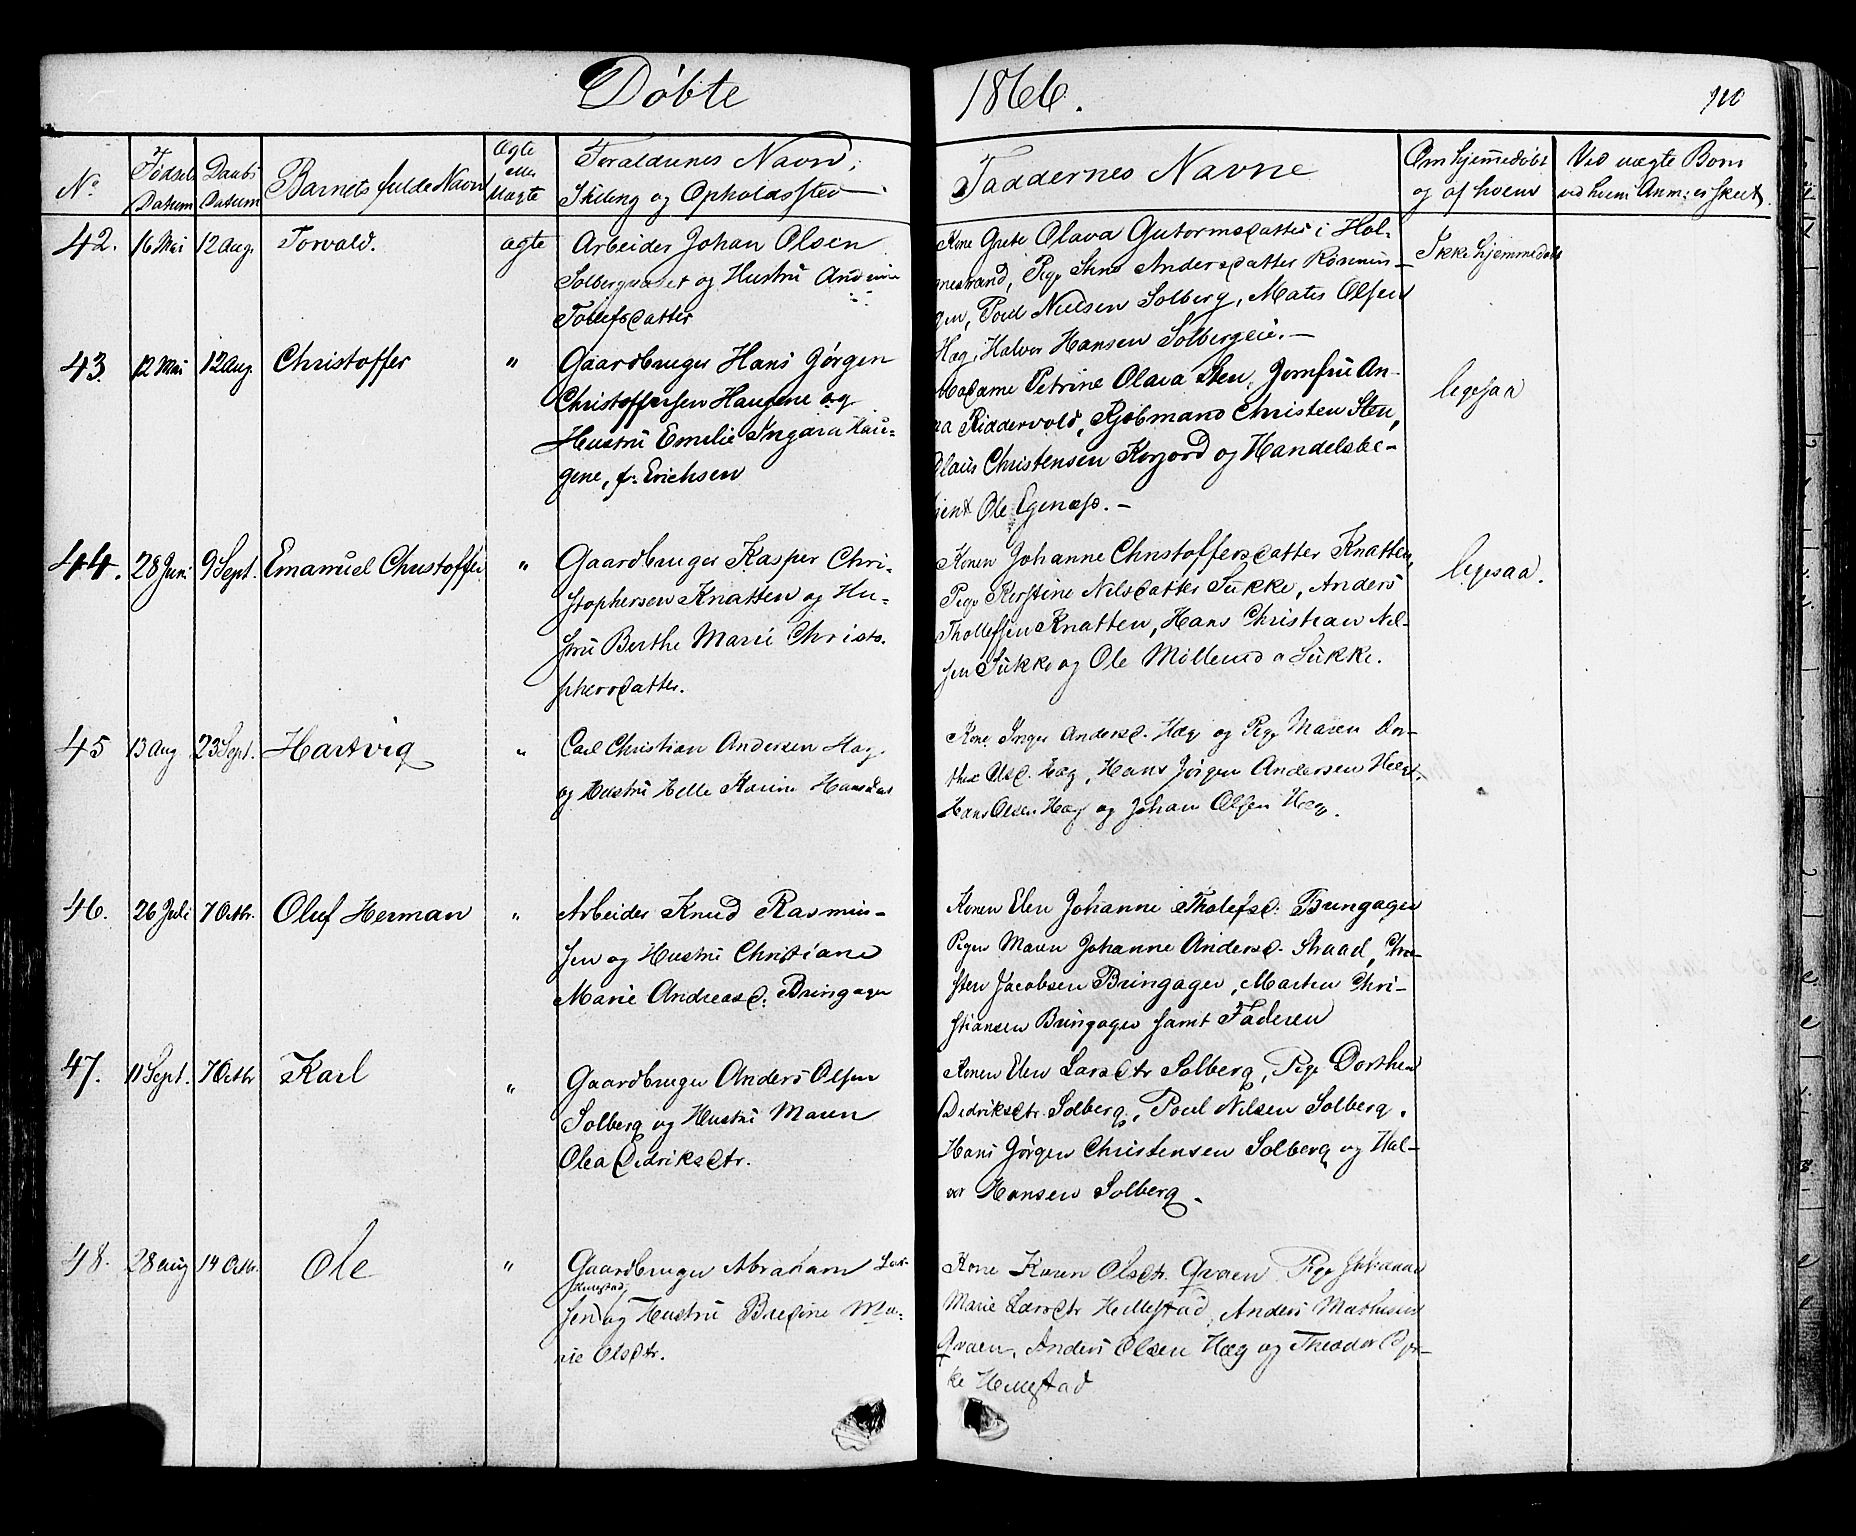 Döbte 1866. 110
No Fødsels Datum Daabs Datum Barnets fulde Navn Ægte eller Uægte Forældrenes Navn, Stilling og Opholdssted Faddernes Navne Om hjemmedøbt og af hvem Ved uægte Børn ved hvem Anm: er skeet
42. 16 Mai 12 Aug. Torvald. ægte Arbeider Johan Olsen
Solberg og Hustru Andrine
Tollefsdatter
Kone Grete Olava Gutormsdatter i Hol-
mestrand, Pige Andersdatter
gen, Poul Nielsen Solberg, Mates Olsen
Hæg, Halvor Hansen Solbergeie. –
Ikke hjemmedøbt
43. 12 Mai 12 Aug. Christoffer " Gaardbruger Hans Jørgen
Christoffersen Haugene og
Hustru Emilie Ingara Hau-
gene, f. Erichsen
Madame Petrine Olava Sten, Jomfru An-
na Riddervold, Kjøbmand Christen Sten,
Olaus Christensen og Handelsbe-
tjent Ole Egenæss. –
ligesaa
44. 28 Juni 9 Sept. Emanuel Christoffer " Gaardbruger Kasper Chri-
stophersen Knatten og Hu-
stru Berthe Marie Christo-
phersdatter.
Konen Johanne Christoffersdatter Knatten,
Pige Kerstine Nilsdatter Sukke, Anders
Thollefsen Knatten, Hans Christian Nil-
sen Sukke og Ole Sukke.
ligesaa.
45 13 Aug 23 Sept. Hartvig " Carl Christian Andersen Hæg
og Hustru Helle Karine Hansdat
Kone Inger Andersd. Hæg og Pige Maren Dor-
thea Olsd. Hæg, Hans Jørgen Andersen
Hans Olsen Hæg og Johan Olsen Hæg.
46. 26 Juli 7 Octbr. Oluf Herman " Arbeider Knud Rasmus-
sen og Hustru Christiane
Marie Andreasd: Bringager
Konen Elen Johanne Tholefsd: Bringager
Pigen Maren Johanne Andersd. Chri-
sten Jacobsen Bringager, Marten Chri-
stiansen Bringager samt Faderen
47. 11 Sept. 7 Octbr Karl " Gaardbruger Anders Olsen
Solberg og Hustru Maren
Olea Dedriksdtr.
Konen Elen Larsdtr Solberg, Pige Dorthea
Dedriksdtr. Solberg, Poul Nilsen Solberg,
Hans Jørgen Christensen Solberg og Hal-
vor Hansen Solberg.
48. 28 Aug 14 Octbr. Ole " Gaardbruger Abraham Lar-
Hillestad
sen og Hustru Bredine Ma-
rie Olsdtr.
Kone Karen Olsdtr. Qvaen, Pige Johanne
Marie Larsdtr Hillestad, Anders Mathisen
Qvaen, Anders Olsen Hæg og Theodor Bjer-
ke Hillestad